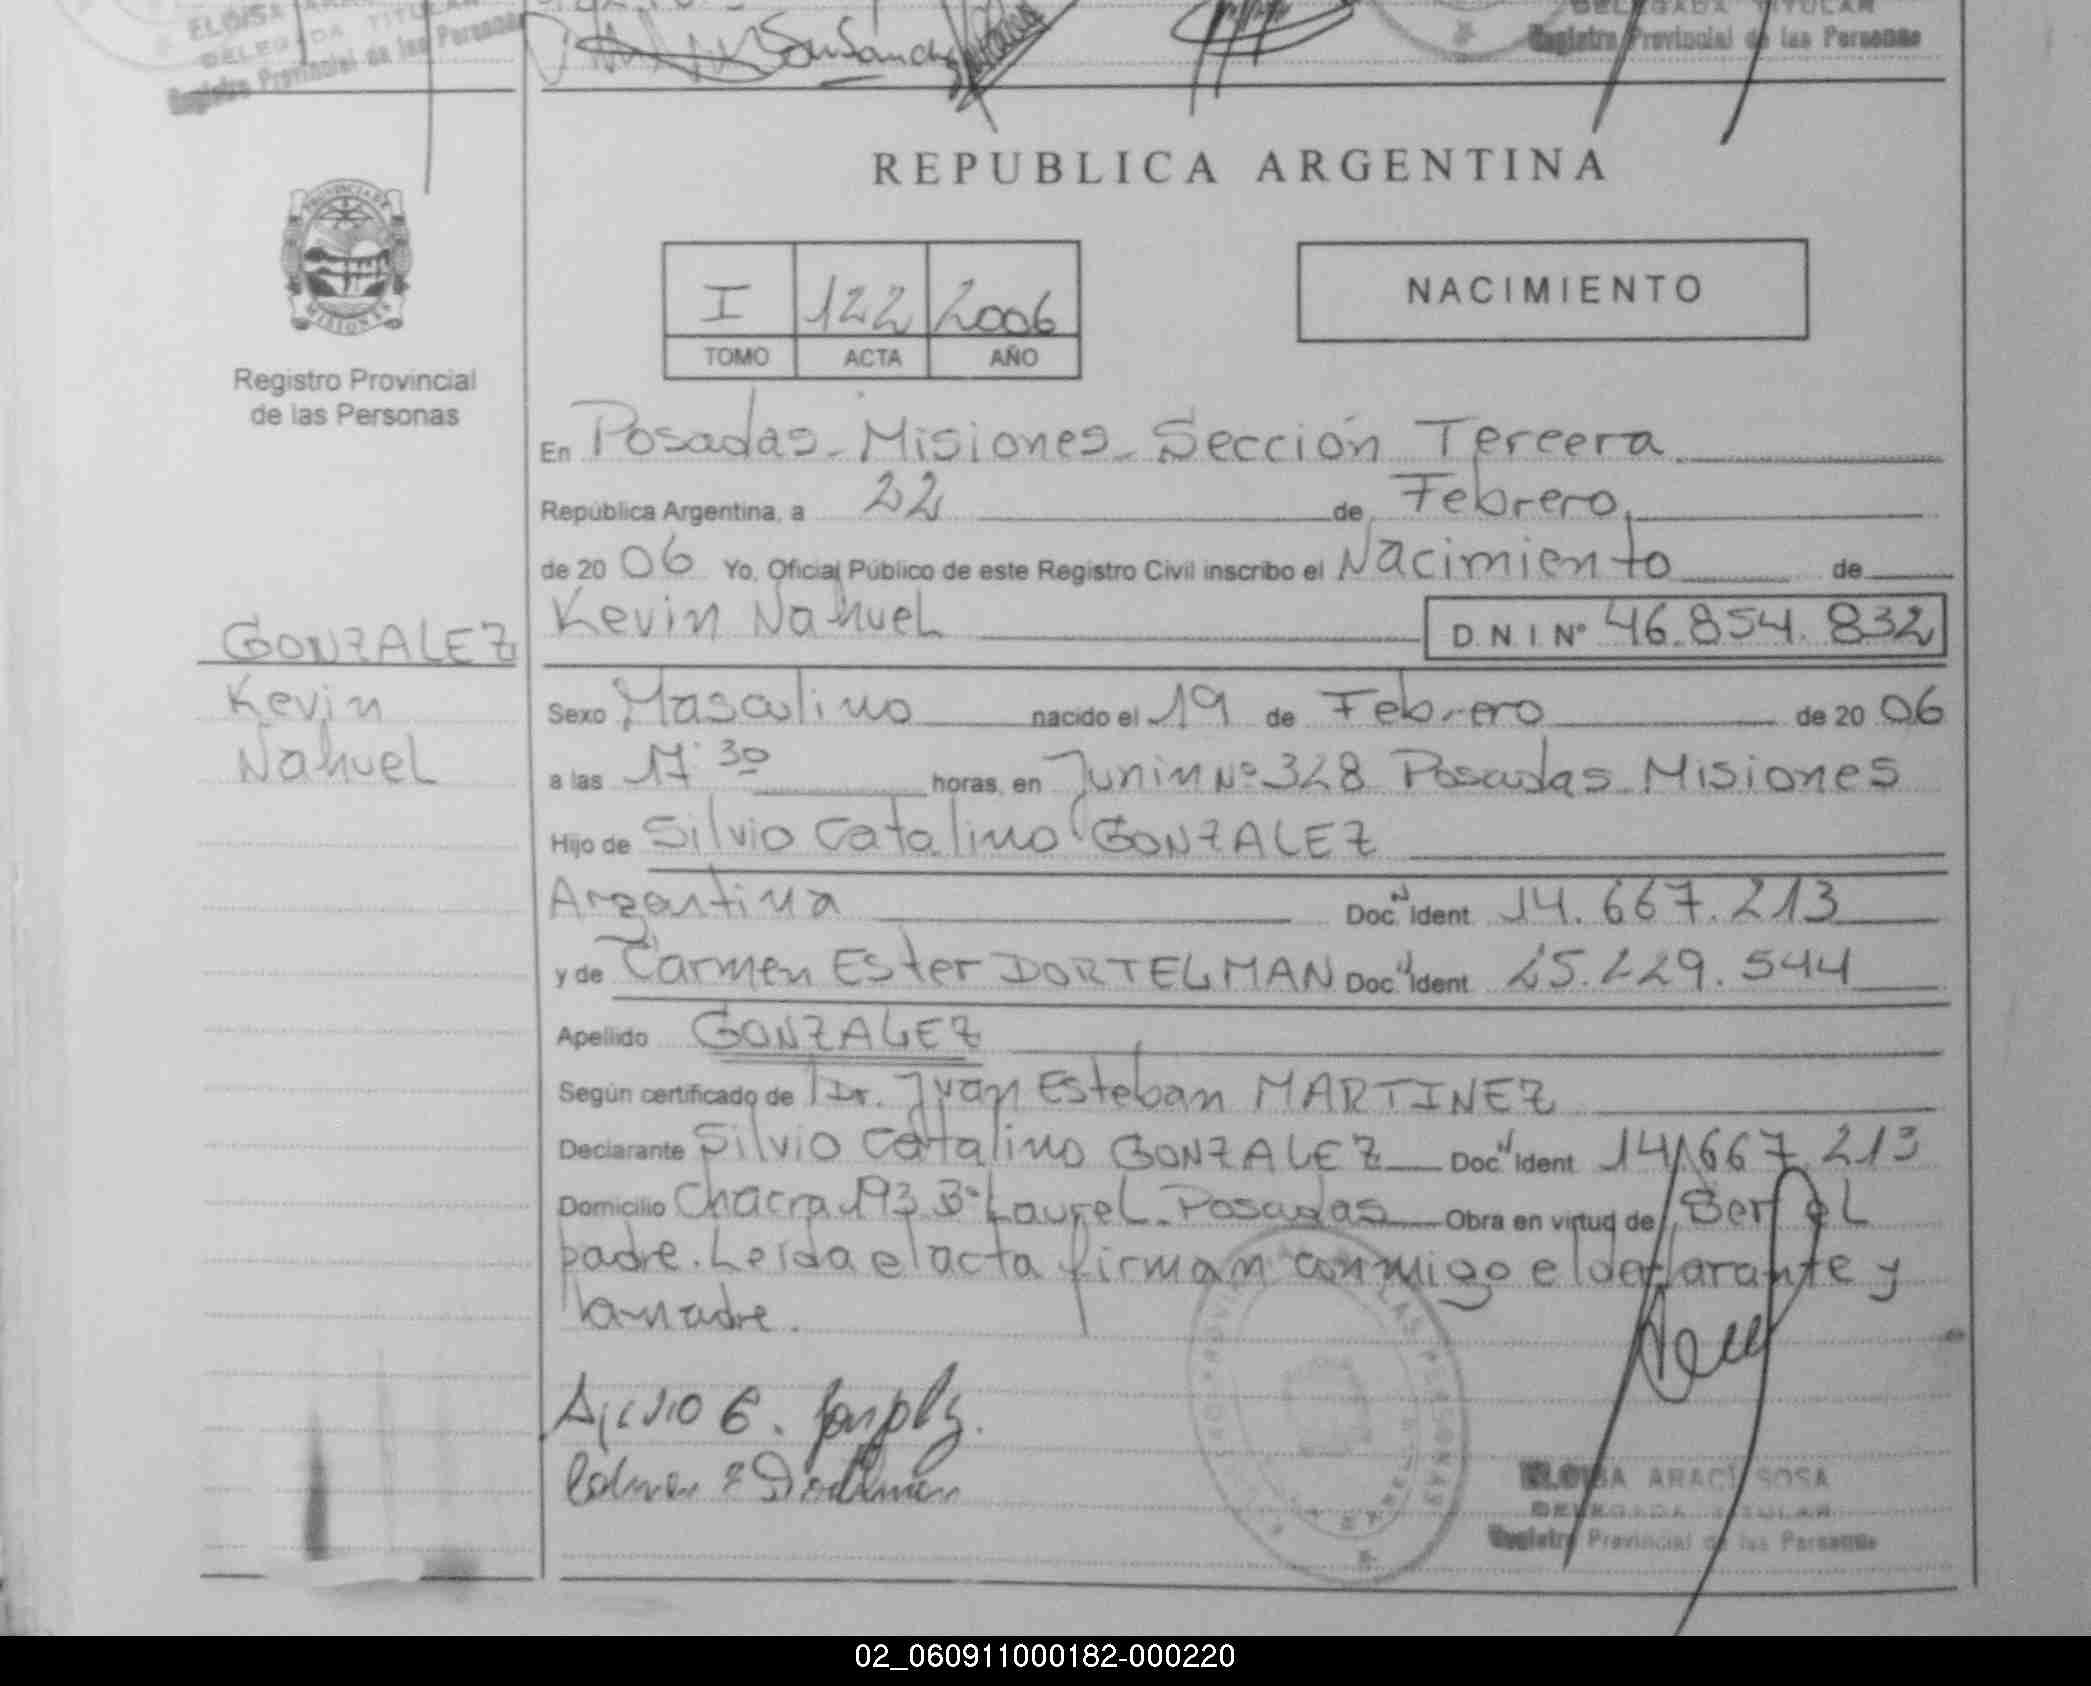 ELOISA
DELEGADA TITULAR
Registro Provincial de las Personas
DELEGADA TITULAR
Registro Provincial de las Personas
REPUBLICA ARGENTINA
PROVINCIA DE
MISIONES
Registro Provincial
de las Personas
I 122 2006
TOMO ACTA AÑO
NACIMIENTO
En Posadas - Misiones - Sección Tercera
República Argentina, a 22 de Febrero
de 20 06 Yo, Oficial Público de este Registro Civil inscribo el Nacimiento de
Kevin Nahuel D.N.I Nº 46.854.832
GONZALEZ
Kevin
Nahuel
Sexo Masculino nacido el 19 de Febrero de 20 06
a las 17 30 horas, en Junin Nº 328 Posadas Misiones
Hijo de Silvio Catalino GONZALEZ
Argentina Doc. Ident. 14.667.213
y de Carmen Ester DORTELMAN Doc. Ident. 25.229.544
Apellido GONZALEZ
Según certificado de Dr. Juan Esteban MARTINEZ
Declarante Silvio Catalino GONZALEZ Doc. Ident. 14.667.213
Domicilio Chacra 193 Bº Laurel - Posadas Obra en virtud de Ser el
padre. Leída el acta firman conmigo el declarante y
la madre.
ELOISA ARACI SOSA
DELEGADA TITULAR
Registro Provincial de las Personas
02_060911000182-000220